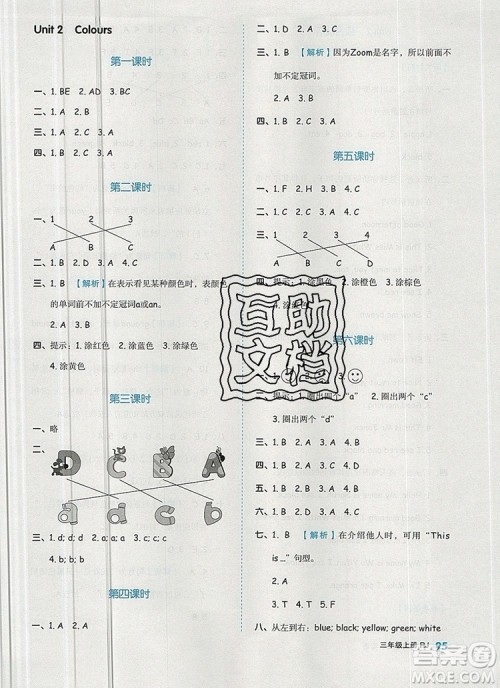 Unit 2 Colours
第一课时
一、1. BE 2. AD 3. BD
二、1. A 2. B
三、1. B 2. C 3. A
四、1. B 2. C 3. A
第二课时
一、1 2 3
A B C
二、1. A 2. C 3. A
三、1. B 【解析】在表示看见某种颜色时，表颜色
的单词前不加不定冠词a或an。
2. B 3. A
四、提示：1. 涂红色 2. 涂蓝色 3. 涂绿色
4. 涂黄色
第三课时
一、略
二、
D C B A
a b c d
三、1. d; d 2. a; a; a 3. c; c; c
4. b; b; b
第四课时
一、1. B 2. A 3. A
二、1. D 2. C 3. B 4. A
三、1. B 【解析】因为Zoom是名字，所以前面不
加不定冠词。
2. B 3. A
四、1. B 2. C 3. A
第五课时
一、1. F 2. H 3. A 4. C
二、1. A 2. C 3. B 4. C
三、1 2 3 4
A B C D
四、提示：1. 涂黑色 2. 涂橙色 3. 涂棕色
4.
互助
文档
第六课时
一、1. B
二、1. 2. 3.
三、提示：1. 圈出两个“a” 2. 圈出两个“c”
3. 圈出两个“d”
四、1. B 2. A 3. A 4. C
五、1. B 2. A 3. A
六、1. D 2. C 3. B 4. A
七、1. B 【解析】在介绍他人时，可用“This
is …”句型。
2. A
3. T 4. T
八、从左到右：blue; black; yellow; green; white
三年级上册 RJ 95
答案圈
MXQE.COM